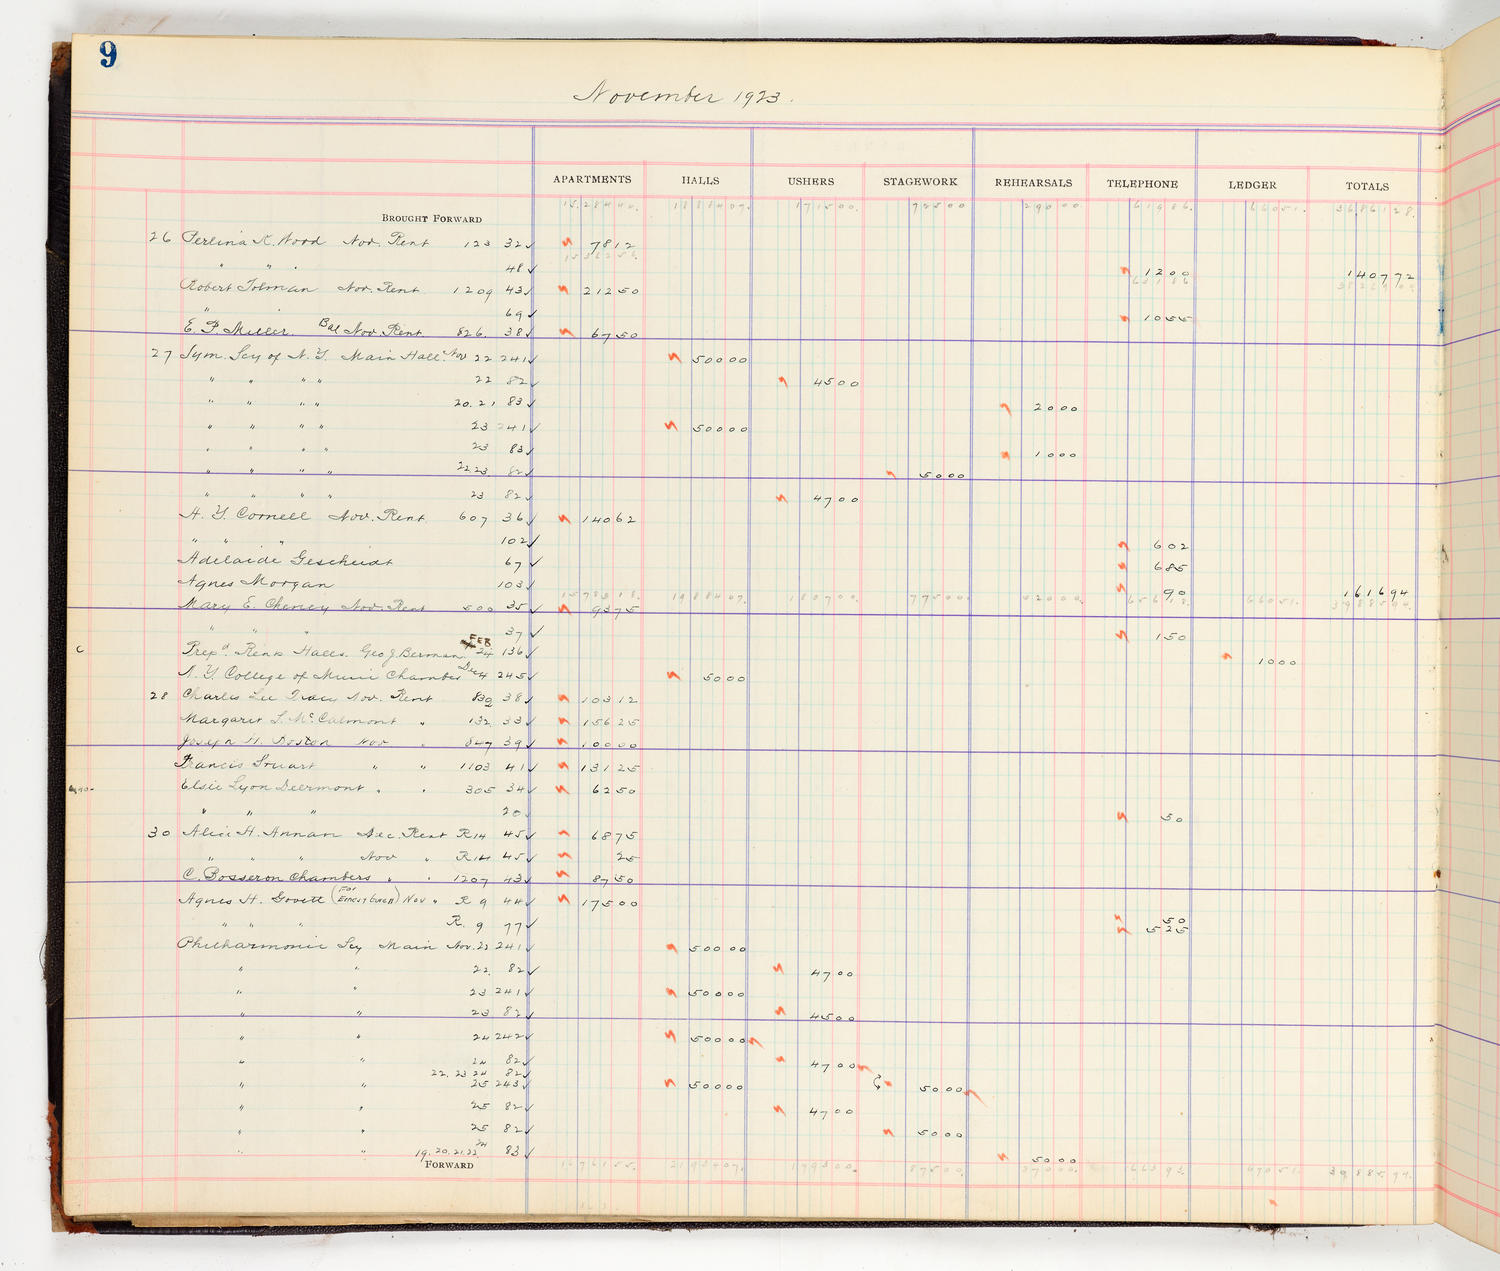 9
November 1923.
APARTMENTS HALLS USHERS STAGEWORK REHEARSALS TELEPHONE LEDGER TOTALS
BROUGHT FORWARD 1528440. 1888407. 171500. 72500 29000 61986. 66051. 3686128.
26 Perlina K. Nov. Rent 123 32✓ 7812
" " 48✓ 1200 140772
Robert Tolman Nov. Rent 1209 43✓ 21250
" 69✓ 1055
E. P. Miller. Bal Nov. Rent 826. 38✓ 6750
27 Sym. Scy of N. Y. Main Hall Nov 22 241✓ 50000
" " " " 22 82✓ 4500
" " " " 20.21 83✓ 2000
" " " " 23 241✓ 50000
" " " " 23 83✓ 1000
" " " " 22.23 82✓ 5000
" " " " 23 82✓ 4700
H. Y. Cornell Nov. Rent 607 36✓ 14062
" " " 102✓ 602
Adelaide Gescheidt 67✓ 685
Agnes Morgan 103✓ 90 161694
Mary E. Cheney Nov. Rent 500 35✓ 9375
" " " 37✓ 150
c Prep'd. Rents Halls. Geo J. Berman FEB 24 136✓ 1000
N. Y. College of Music Chamber Dec 4 245✓ 5000
28 Charles Lee Tracy Nov. Rent 832 38✓ 10312
Margaret S. McCalmont " 132 33✓ 15625
Joseph H. Boston Nov " 847 39✓ 10000
Francis Stuart " " 1103 41✓ 13125
Elsie Lyon Deermont " " 305 34✓ 6250
" " " 20 50
30 Alice H. Annan Dec. Rent R14 45✓ 6875
" " " Nov " R14 45✓ 25
C. Bosseron Chambers " " 1207 43✓ 8750
Agnes H. Govett (For ) Nov " R 9 44✓ 17500
50
" " " R. 9 77✓ 525
Philharmonic Scy Main Nov. 22 241✓ 50000
" " 22. 82✓ 4700
" " 23 241✓ 50000
" " 23 82✓ 4500
" " 24 242✓ 50000
" " 24 82✓ 4700
22. 23 24 82✓ 5000
" " 25 243✓ 50000
" " 25 82✓ 4700
" " 25 82✓ 5000
" " 19. 20. 21. 22 24 83✓ 5000
FORWARD 1676155. 2193407. 199500. 87500. 37000. 66393. 67051. 3988594.